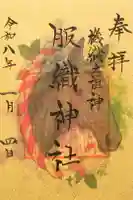 奉拝
機織之祖神
服織神社
令和八年
一月四日